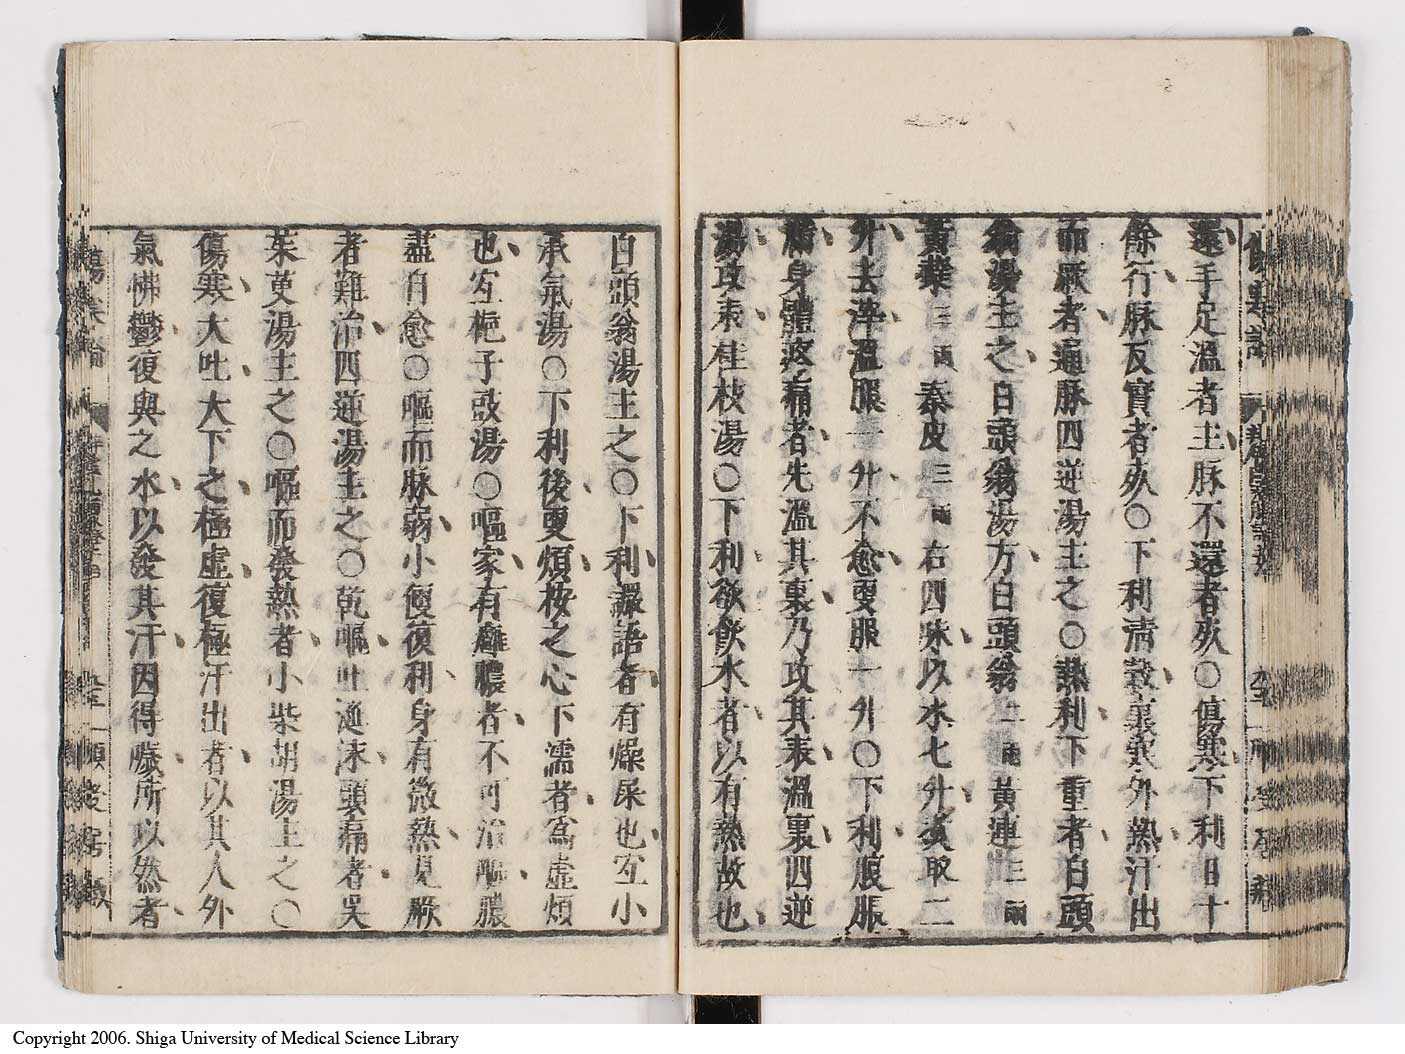 還手足溫者生脉不還者死○傷寒下利日十
餘行脉反實者死○下利清穀裏寒外熱汗出
而厥者通脉四逆湯主之○熱利下重者白頭
翁湯主之白頭翁湯方白頭翁二兩黃連三兩
黃蘗三兩秦皮三兩右四味以水七升煑取二
升去滓溫服一升不愈更服一升○下利腹脹
滿身體疼痛者先溫其裏乃攻其表溫裏四逆
湯攻表桂枝湯○下利欲飲水者以有熱故也
白頭翁湯主之○下利讝語者有燥屎也宜小
承氣湯○下利後更煩按之心下濡者爲虛煩
也宜梔子豉湯○嘔家有癰膿者不可治嘔膿
盡自愈○嘔而脉弱小便復利身有微熱見厥
者難治四逆湯主之○乾嘔吐涎沫頭痛者吳
茱萸湯主之○嘔而發熱者小柴胡湯主之○
傷寒大吐大下之極虛復極汗出者以其人外
氣怫鬱復與之水以發其汗因得噦所以然者
傷寒論
Copyright 2006. Shiga University of Medical Science Library